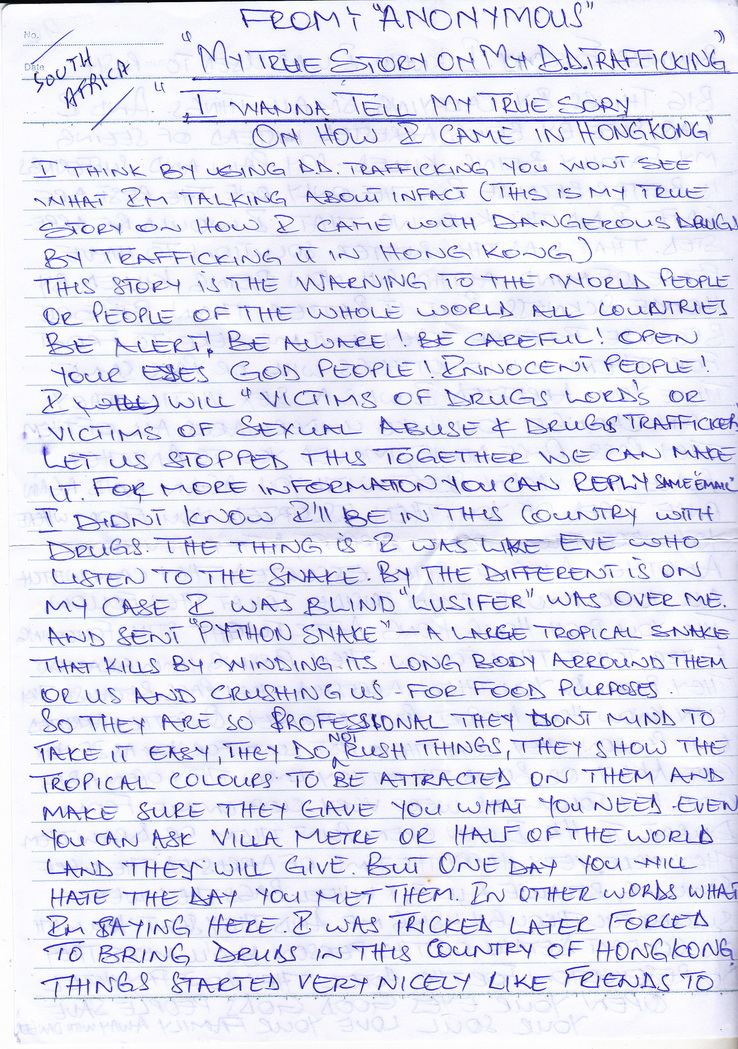 FROM: "ANONYMOUS"
No.
Date
SOUTH
AFRICA
"MY TRUE STORY ON MY D.D.TRAFFICKING"
" I WANNA TELL MY TRUE SORY
ON HOW I CAME IN HONGKONG"
I THINK BY USING D.D. TRAFFICKING YOU WONT SEE
WHAT IM TALKING ABOUT INFACT (THIS IS MY TRUE
STORY ON HOW I CAME WITH DANGEROUS DRUGS
BY TRAFFICKING IT IN HONG KONG)
THIS STORY IS THE WARNING TO THE WORLD PEOPLE
OR PEOPLE OF THE WHOLE WORLD ALL COUNTRIES
BE ALERT! BE AWARE! BE CAREFUL! OPEN
YOUR EYES GOD PEOPLE! INNOCENT PEOPLE!
I WILL "VICTIMS OF DRUGS LORD'S OR
VICTIMS OF SEXUAL ABUSE & DRUGS TRAFFICKER
LET US STOPPED THIS TOGETHER WE CAN MAKE
IT. FOR MORE INFORMATION YOU CAN REPLY SAME "EMAIL"
I DIDNT KNOW I'LL BE IN THIS COUNTRY WITH
DRUGS. THE THING IS I WAS LIKE EVE WHO
LISTEN TO THE SNAKE. BY THE DIFFERENT IS ON
MY CASE I WAS BLIND "LUSIFER" WAS OVER ME.
AND SENT "PYTHON SNAKE" - A LARGE TROPICAL SNAKE
THAT KILLS BY WINDING ITS LONG BODY ARROUND THEM
OR US AND CRUSHING US - FOR FOOD PURPOSES.
SO THEY ARE SO PROFESSIONAL THEY DONT MIND TO
TAKE IT EASY, THEY DO NOT RUSH THINGS, THEY SHOW THE
TROPICAL COLOURS TO BE ATTRACTED ON THEM AND
MAKE SURE THEY GAVE YOU WHAT YOU NEED. EVEN
YOU CAN ASK VILLA METRE OR HALF OF THE WORLD
LAND THEY WILL GIVE. BUT ONE DAY YOU WILL
HATE THE DAY YOU MET THEM. IN OTHER WORDS WHAT
IM SAYING HERE. I WAS TRICKED LATER FORCED
TO BRING DRUGS IN THIS COUNTRY OF HONGKONG
THINGS STARTED VERY NICELY LIKE FRIENDS TO